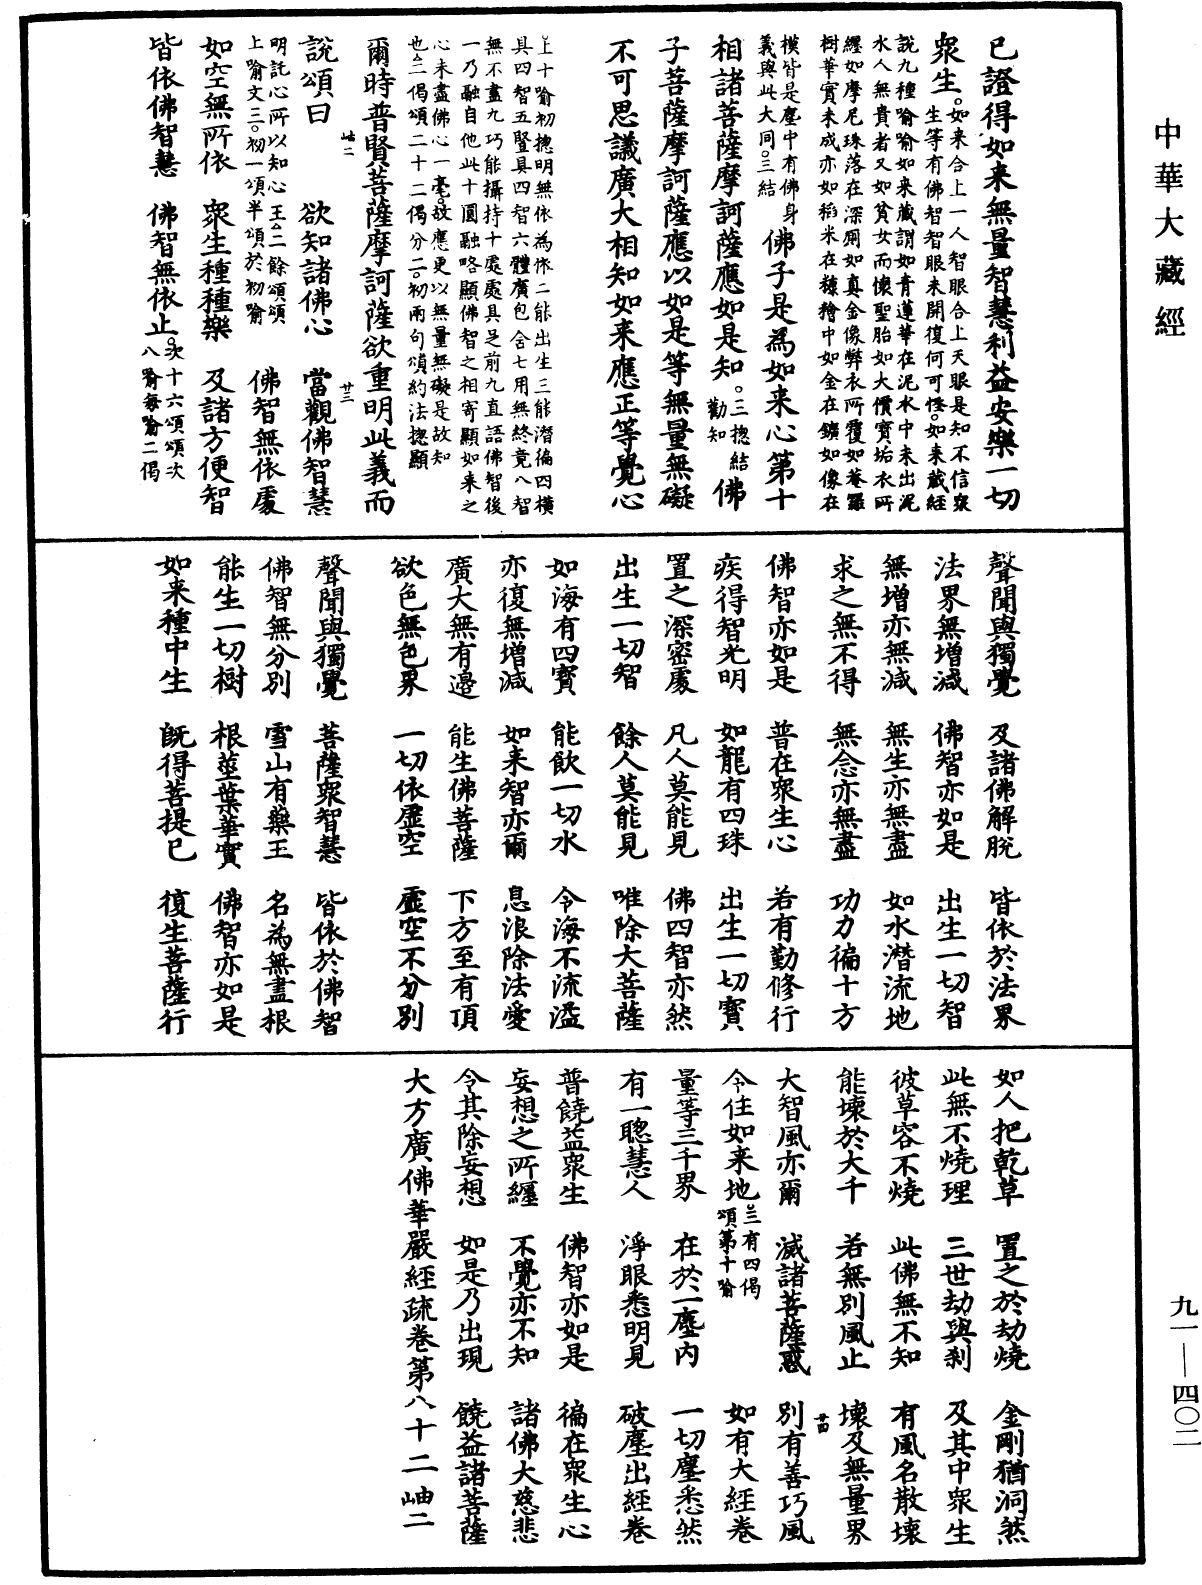 中華大藏經
已證得如来無量智慧利益安樂一切
衆生。如来合上一人智眼合上天眼是知不信衆
生等有佛智智眼未開復何可怪如来藏經
說九種喻喻如来藏謂如青蓮華在泥水中未出泥
水人無貴者又如貧女而懷聖胎如大價寳垢衣所
纒如摩尼珠落在深厠如真金像弊衣所覆如菴羅
樹華實未成亦如稻米在糠糩中如金在鑛如像在
模皆是塵中有佛身
義與此大同。三結
佛子是為如来心第十
相諸菩薩摩訶薩應如是知。三揔結勸知佛
子菩薩摩訶薩應以如是等無量無礙
不可思議廣大相知如来應正等覺心
上十喻初揔明無依為依二能出生三能潛徧四橫
具四智五豎具四智六體廣包含七用無終竟八智
無不盡九巧能攝持十處處具足前九直語佛智後
一乃融自他此十圓融略顯佛智之相寄顯如来之
心未盡佛心一毫。故應更以無量無礙是故知
也二偈頌二十二偈分二。初兩句頌約法揔顯
爾時普賢菩薩摩訶薩欲重明此義而
岫二
廿三
說頌曰 欲知諸佛心 當觀佛智慧
明託心所以知心王二餘頌頌
上喻文三。初一頌半頌於初喻
佛智無依處
如空無所依 衆生種種樂 及諸方便智
皆依佛智慧 佛智無依止。次十六頌頌次
八喻每喻二偈
聲聞與獨覺 及諸佛解脫 皆依於法界
法界無增減 佛智亦如是 出生一切智
無增亦無減 無生亦無盡 如水潛流地
求之無不得 無念亦無盡 功力徧十方
佛智亦如是 普在衆生心 若有勤修行
疾得智光明 如龍有四珠 出生一切寳
置之深密處 凡人莫能見 佛四智亦然
出生一切智 餘人莫能見 唯除大菩薩
如海有四寳 能飲一切水 令海不流溢
亦復無增減 如来智亦爾 息浪除法愛
廣大無有邊 能生佛菩薩 下方至有頂
欲色無色界 一切依虛空 虛空不分別
聲聞與獨覺 菩薩衆智慧 皆依於佛智
佛智無分別 雪山有藥王 名為無盡根
能生一切樹 根莖葉華實 佛智亦如是
如来種中生 旣得菩提已 復生菩薩行
如人把乾草 置之於劫燒 金剛猶洞然
此無不燒理 三世劫與剎 及其中衆生
彼草容不燒 此佛無不知 有風名散壞
能壞於大千 若無別風止 壞及無量界
廿四
大智風亦爾 滅諸菩薩惑 別有善巧風
令住如来地三有四偈頌第十喻 如有大經卷
量等三千界 在於一塵內 一切塵悉然
有一聰慧人 淨眼悉明見 破塵出經卷
普饒益衆生 佛智亦如是 徧在衆生心
妄想之所纏 不覺亦不知 諸佛大慈悲
令其除妄想 如是乃出現 饒益諸菩薩
大方廣佛華嚴經疏卷第八十二 岫二
九一—四〇二